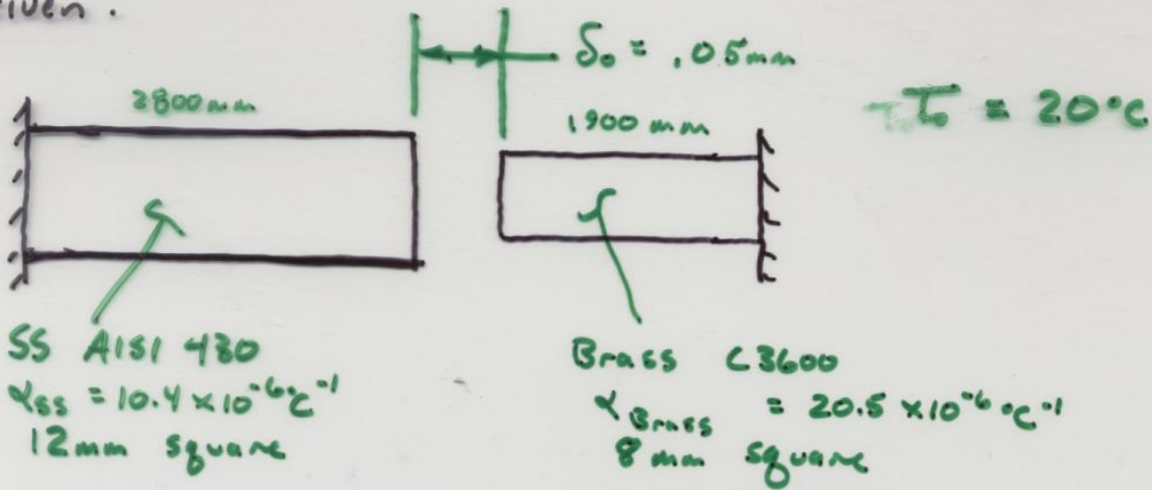 δ₀ = .05mm
2800mm
1900 mm
T₀ = 20°C
SS AISI 430
α_SS = 10.4 × 10⁻⁶ °C⁻¹
12mm square
Brass C3600
α_Brass = 20.5 × 10⁻⁶ °C⁻¹
8 mm square